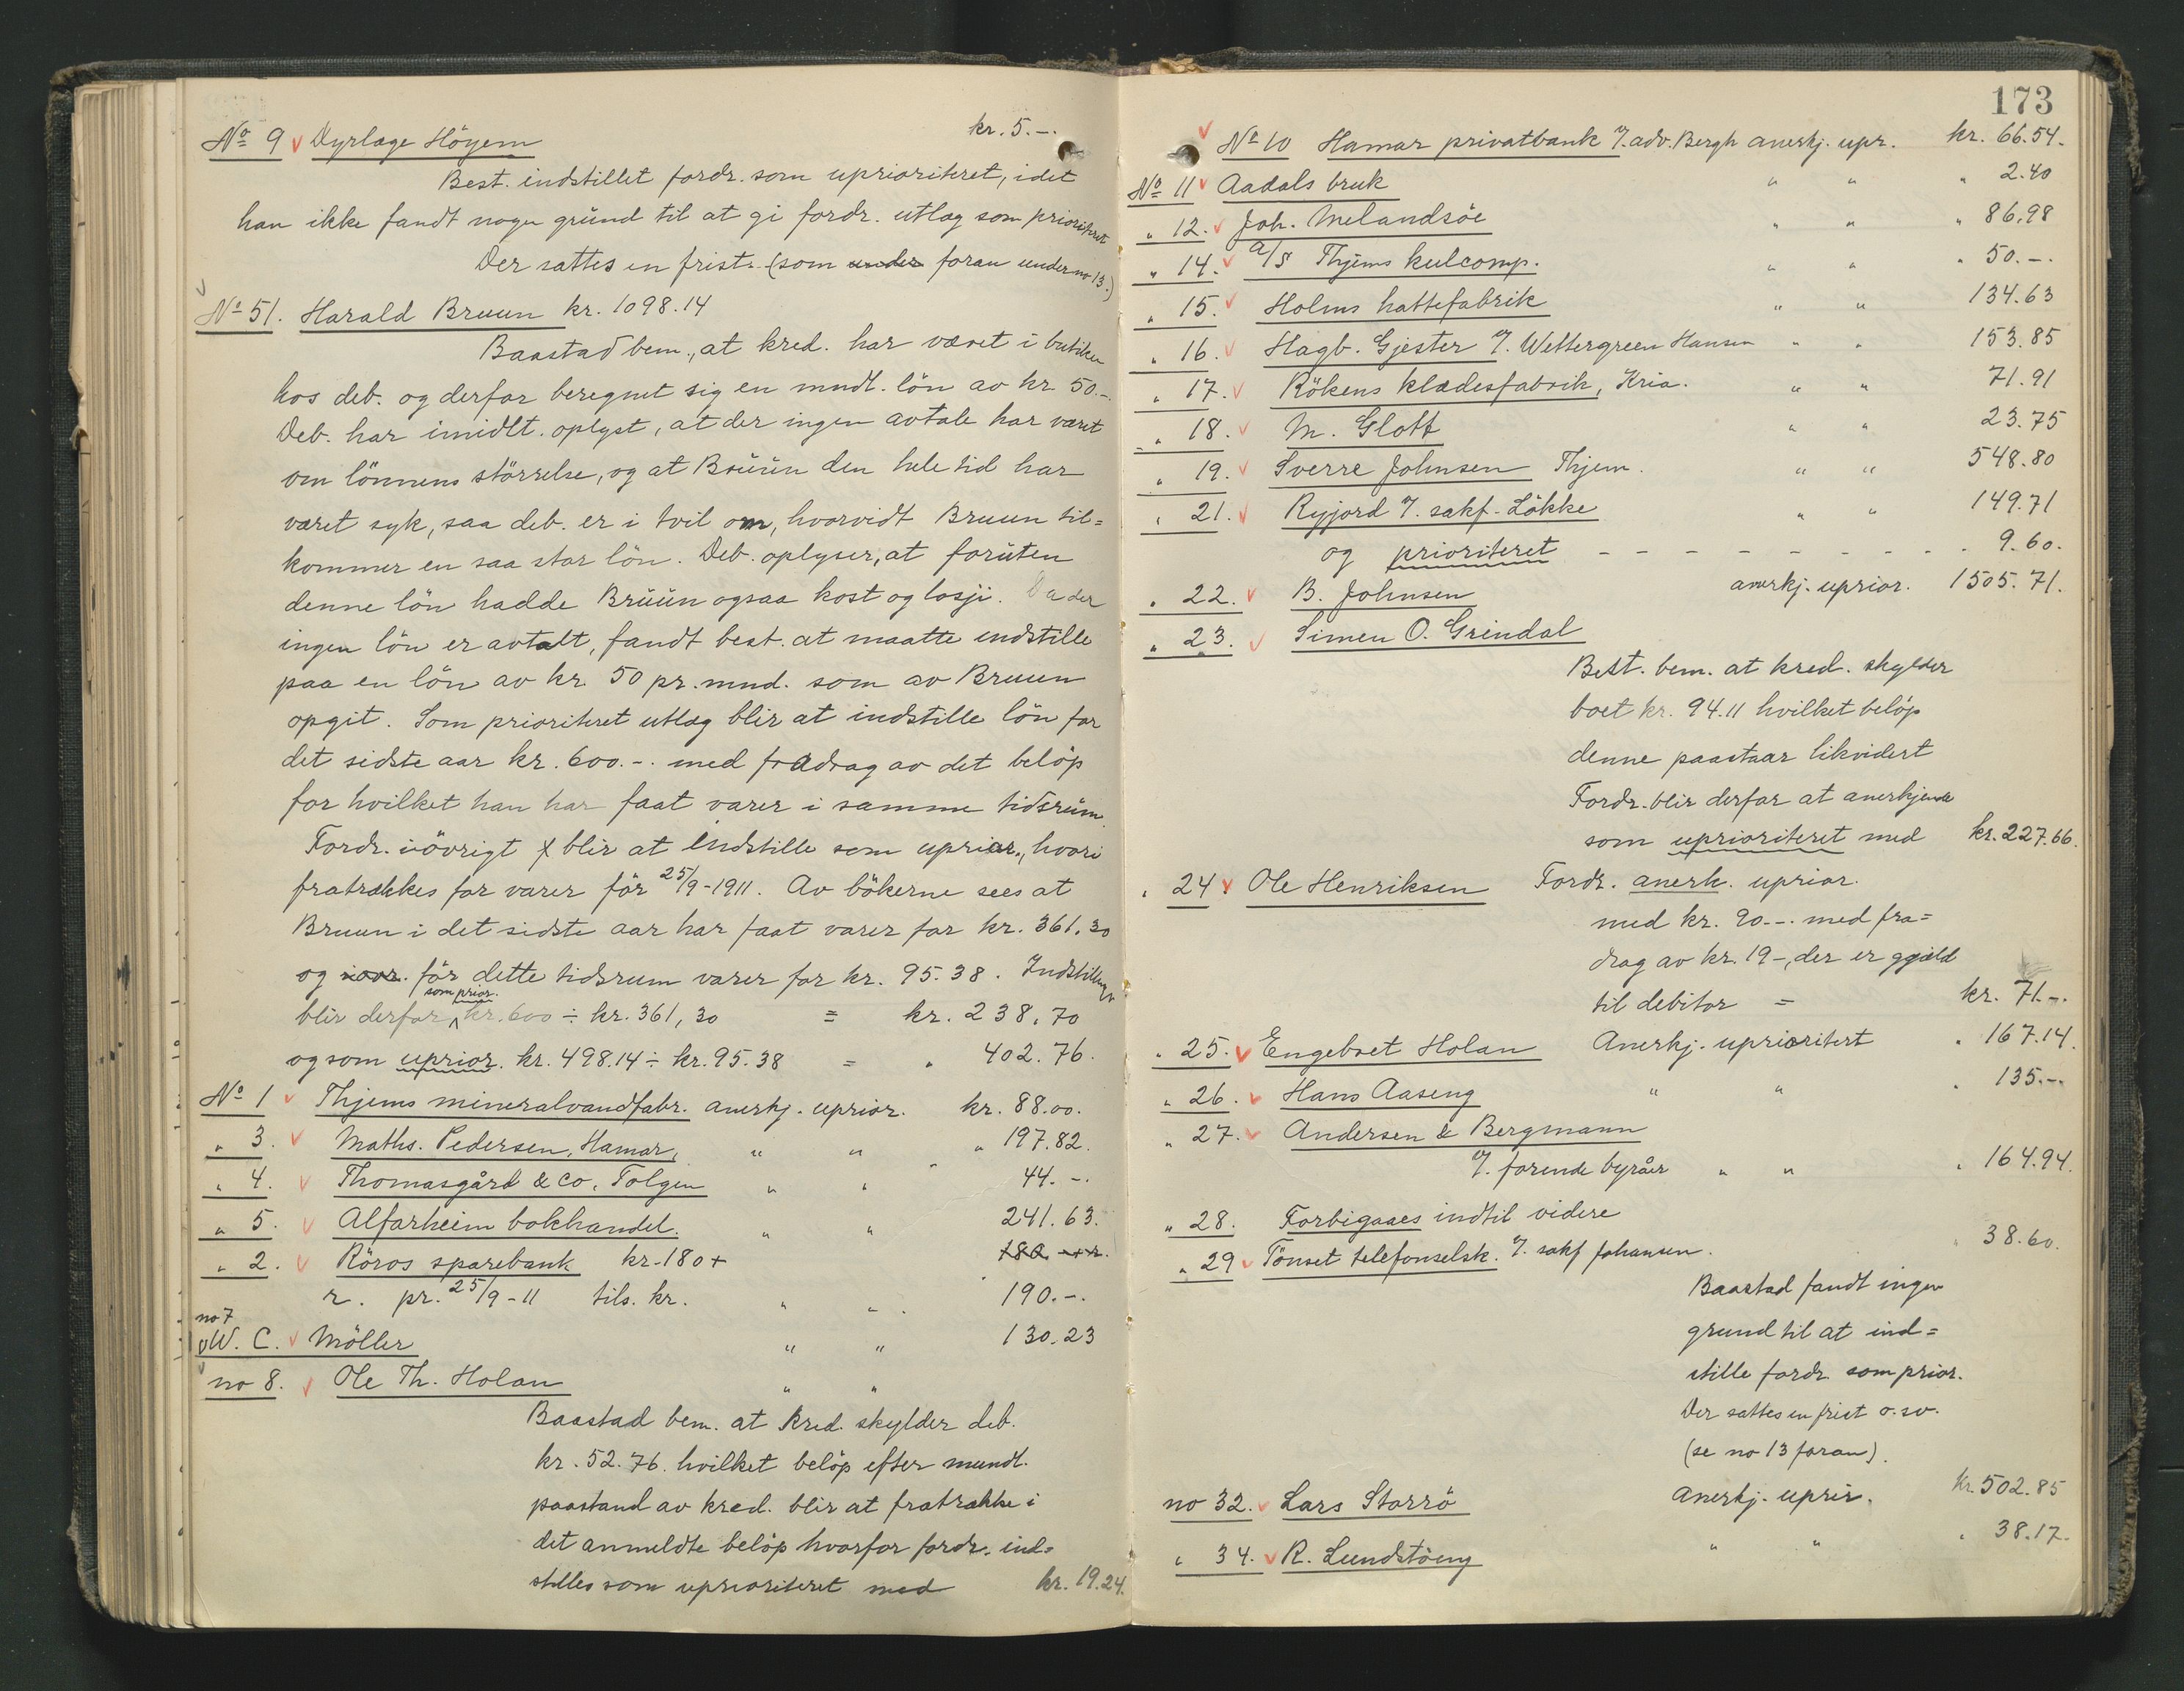 No 9 Dyrlæge Höyem kr. 5.-.
Best. indstillet fordr. som uprioritert, idet
han ikke fandt nogen grund til at gi fordr. utlæg som prioritert
Der sattes en frist. (som under foran under no 13.)
No 51. Harald Bruun kr. 1098.14
Baastad bem., at kred. har været i butiken
hos deb. og derfor beregnet sig en mndl. lön av kr. 50.-.
Deb. har imidlt. oplyst, at der ingen avtale har været
om lönnens störrelse, og at Bruun den hele tid har
været syk, saa deb. er i tvil om, hvorvidt Bruun til=
kommer en saa stor lön. Deb. oplyser, at foruten
denne lön hadde Bruun ogsaa kost og losji. Da der
ingen lön er avtalt, fandt best. at maatte indstille
paa en lön av kr. 50 pr. mnd. som av Bruun
opgit. Som prioritert utlæg blir at indstille lön for
det sidste aar kr. 600.-. med fradrag av det belöp
for hvilket han har faat varer i samme tidsrum.
Fordr. iövrigt blir at indstille som uprior., hvori
fratrækkes for varer för 25/9-1911. Av bökerne sees at
Bruun i det sidste aar har faat varer for kr. 361.30
og för dette tidsrum varer for kr. 95.38. Indstillingen
blir derfor som prior. kr. 600 ÷ kr. 361,30 = kr. 238,70
og som uprior. kr. 498.14 ÷ kr. 95.38 = " 402.76.
No 1 Thjems mineralvandfabr. anerkj. uprior. kr. 88.00.
" 3. Maths. Pedersen, Hamar, " " " 197.82.
" 4. Thomasgård & Co. Tolgen " " 44.-.
" 5. Alfarheim bokhandel. " " 241.63.
" 2. Röros sparebank kr. 180 + 180 + r.
r. pr. 25/9-11 tils. kr. " " 190.-.
no 7
W. C. Möller " " 130.23
no 8. Ole Th. Holan " "
Baastad bem. at kred. skylder deb.
kr. 52.76. hvilket belöp efter mundt.
paastand av kred. blir at fratrække i
det anmeldte belöp hvorfor fordr. ind=
stilles som uprioritert med kr. 19.24.
173
No 10 Hamar privatbank v/. adv. Bergh anerkj. upr. kr. 66.54.
No 11 Aadals bruk " " " 2.40
" 12. Joh. Melandsöe " " " 86.98
" 14. A/S Thjems kulcomp. " " " 50.-.
" 15. Holms hattefabrik " " 134.63
" 16. Hagb. Gjester v/. Wettergreen Hansen " " 153.85
" 17. Rökens klædesfabrik, Kria. " " 71.91
" 18. M. Glott " " 23.75
" 19. Sverre Johnsen Thjem. " " 548.80
" 21. Ryjord v/. sakf. Lökke " " 149.71
og prioriteret - - - - - - - - 9.60.
" 22. B. Johnsen anerkj. uprior. 1505.71.
" 23. Simen O. Grindal
Best. bem. at kred. skylder
boet kr. 94.11 hvilket belöp
denne paastaar likvidert
Fordr. blir derfor at anerkjende
som uprioriteret med kr. 227.66.
" 24. Ole Henriksen Fordr. anerk. uprior.
med kr. 90.-. med fra=
drag av kr. 19-, der er gjæld
til debitor = kr. 71.-.
" 25. Engebret Holan Anerkj. uprioritert " 167.14.
" 26. Hans Aaseng " " " 135.-.
" 27. Andersen & Bergmann
v/. forende byråer " " " 164.94.
" 28. Forbigaaes indtil videre
" 29 Tönset telefonselsk. v/. sakf Johansen. " 38.60.
Baastad fandt ingen
grund til at ind=
stille fordr. som prior.
Der sattes en frist o.sv.
(se no 13 foran).
no 32. Lars Storrö Anerkj. uprir. kr. 502.85
" 34. R. Lundstöeng " " " 38.17.